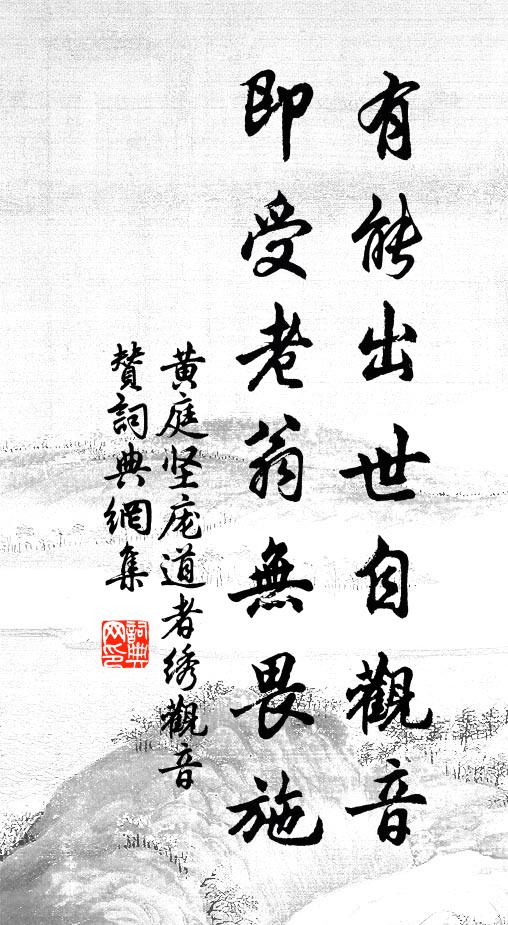 有能出世自觀音
即受老翁無畏施
黄庭坚庞道者绣觀音
贊詞典網集
詞典
网印